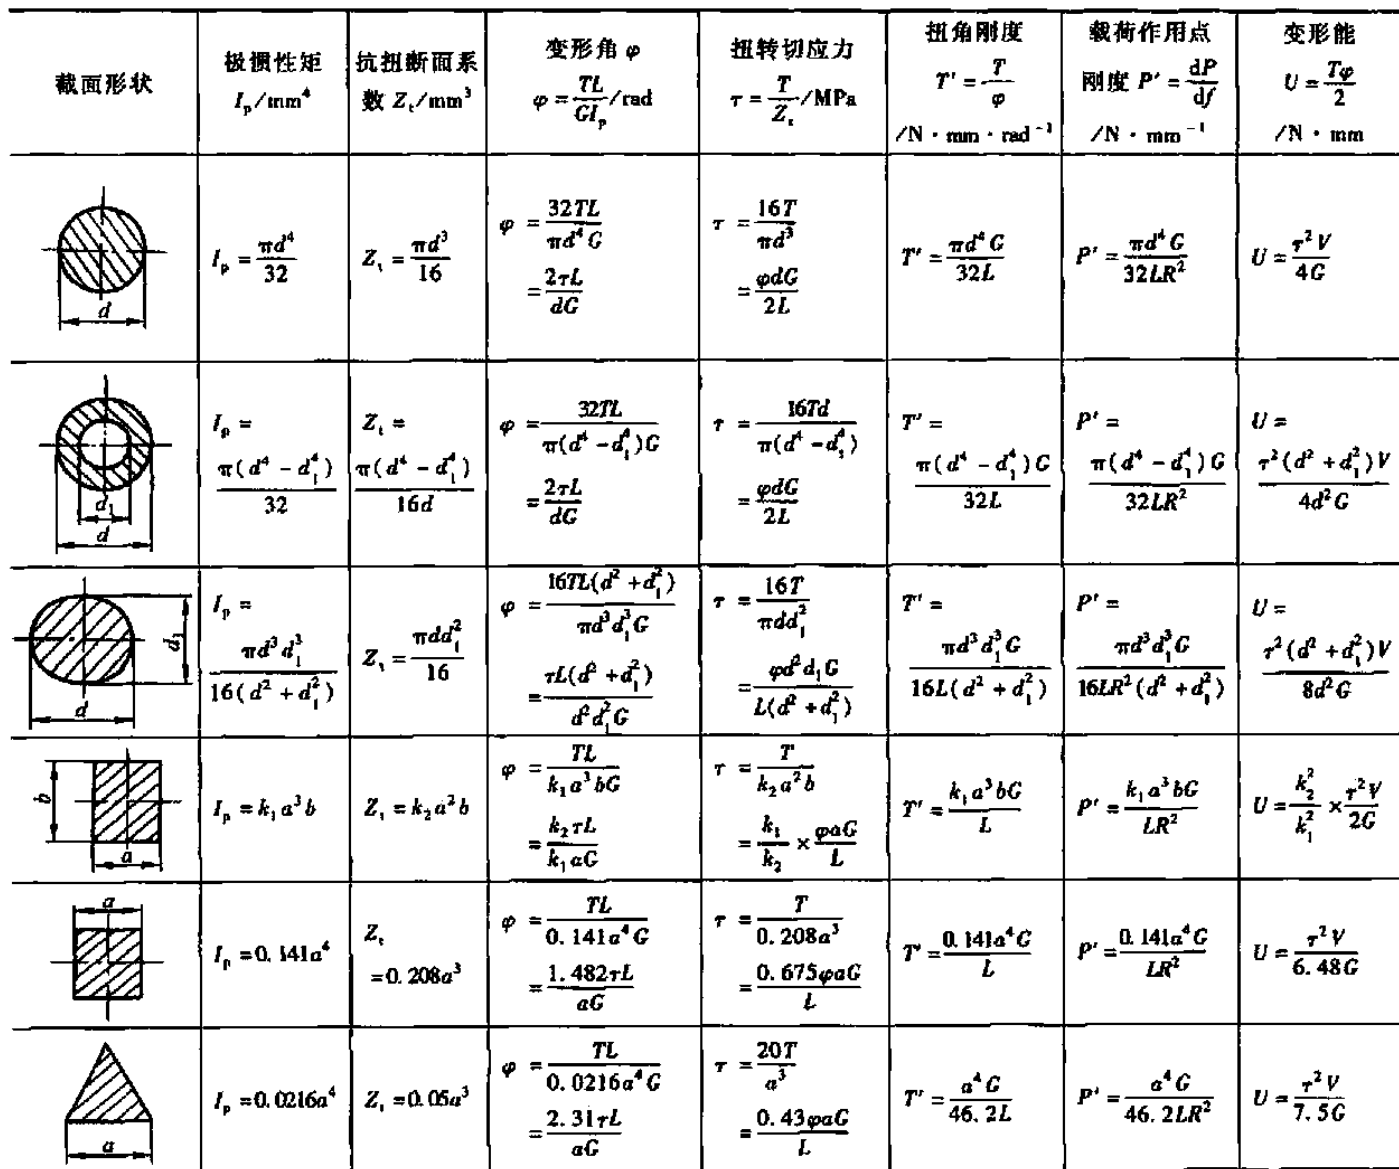 截面形状
极惯性矩
I_p/mm⁴
抗扭断面系
数 Z_t/mm³
变形角 φ
φ = TL/GI_p /rad
扭转切应力
τ = T/Z_t /MPa
扭角刚度
T′ = T/φ
/N·mm·rad⁻¹
载荷作用点
刚度 P′ = dP/df
/N·mm⁻¹
变形能
U = Tφ/2
/N·mm
d
I_p = πd⁴/32
Z_t = πd³/16
φ = 32TL/πd⁴G
= 2τL/dG
τ = 16T/πd³
= φdG/2L
T′ = πd⁴G/32L
P′ = πd⁴G/32LR²
U = τ²V/4G
d₁
d
I_p =
π(d⁴ - d₁⁴)/32
Z_t =
π(d⁴ - d₁⁴)/16d
φ = 32TL/π(d⁴ - d₁⁴)G
= 2τL/dG
τ = 16Td/π(d⁴ - d₁⁴)
= φdG/2L
T′ =
π(d⁴ - d₁⁴)G/32L
P′ =
π(d⁴ - d₁⁴)G/32LR²
U =
τ²(d² + d₁²)V/4d²G
d₁
d
I_p =
πd³d₁³/16(d² + d₁²)
Z_t = πdd₁²/16
φ = 16TL(d² + d₁²)/πd³d₁³G
= τL(d² + d₁²)/d²d₁²G
τ = 16T/πdd₁²
= φd²d₁G/L(d² + d₁²)
T′ =
πd³d₁³G/16L(d² + d₁²)
P′ =
πd³d₁³G/16LR²(d² + d₁²)
U =
τ²(d² + d₁²)V/8d²G
b
a
I_p = k₁a³b
Z_t = k₂a²b
φ = TL/k₁a³bG
= k₂τL/k₁aG
τ = T/k₂a²b
= k₁/k₂ × φaG/L
T′ = k₁a³bG/L
P′ = k₁a³bG/LR²
U = k₂²/k₁² × τ²V/2G
a
I_p = 0.141a⁴
Z_t
= 0.208a³
φ = TL/0.141a⁴G
= 1.482τL/aG
τ = T/0.208a³
= 0.675φaG/L
T′ = 0.141a⁴G/L
P′ = 0.141a⁴G/LR²
U = τ²V/6.48G
a
I_p = 0.0216a⁴
Z_t = 0.05a³
φ = TL/0.0216a⁴G
= 2.31τL/aG
τ = 20T/a³
= 0.43φaG/L
T′ = a⁴G/46.2L
P′ = a⁴G/46.2LR²
U = τ²V/7.5G